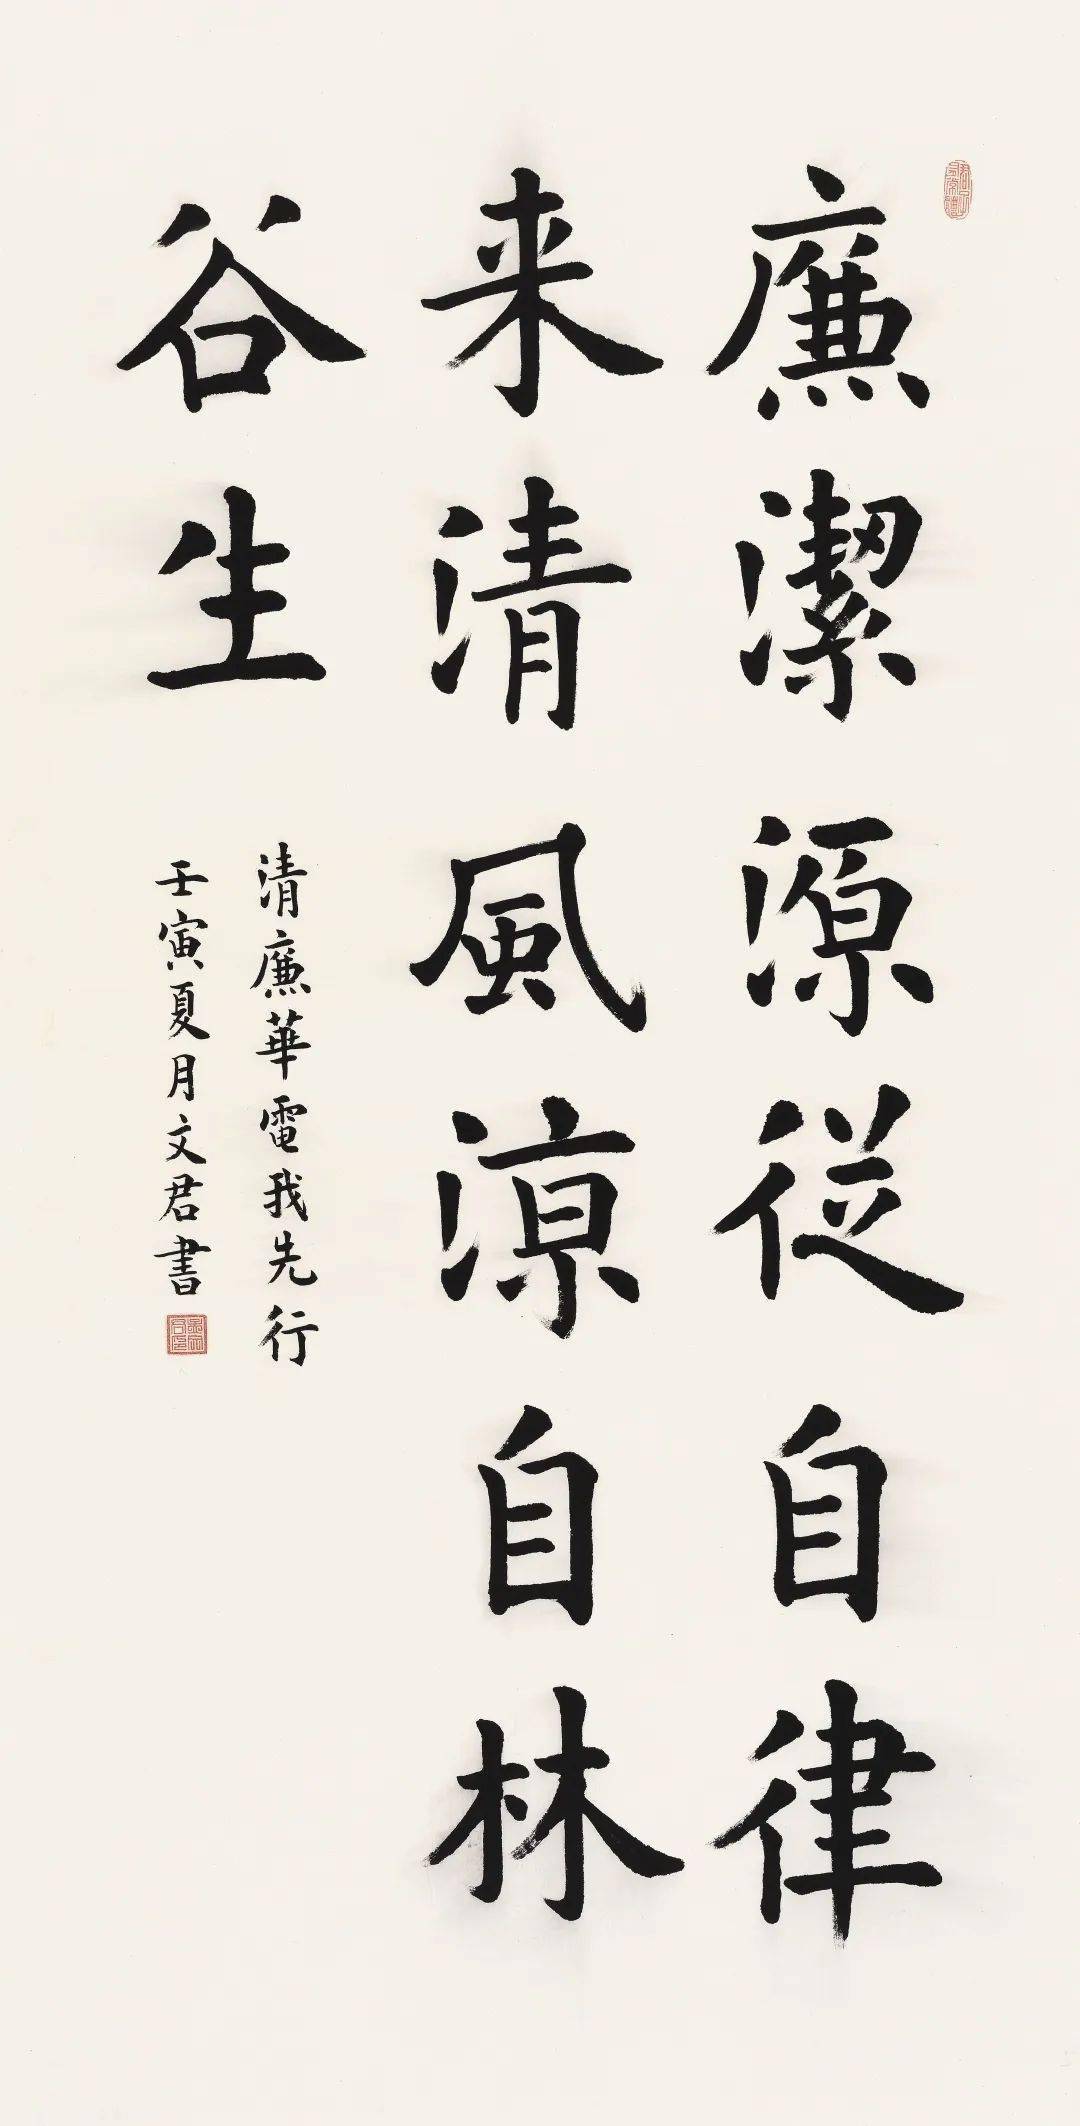 廉潔源從自律
来清風涼自林
谷生
清廉華電我先行
壬寅夏月文君書